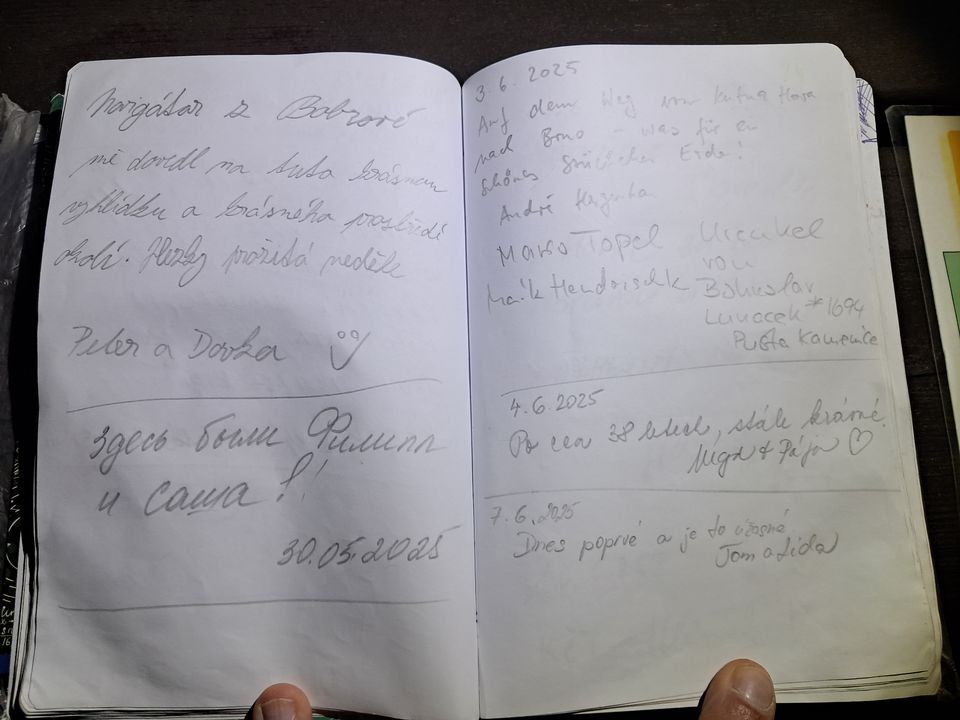 Navigátor z Bobrové
mě dovedl na tuto krásnou
vyhlídku a krásného prostředí
okolí. Hezky prožitá neděle
Peter a Dorka
Здесь были Филипп
и Саша!
30.05.2025
3.6.2025
Auf dem Weg von Kutna Hora
nach Brno - was für ein
schönes Stückchen Erde!
André
Mario Topel Urenkel
von
Maik Hendrischk Bohuslav
Lunacek *1694
Pusta Kamenice
4.6.2025
Po cca 38 letech, stále krásné.
& Pája ♡
7.6.2025
Dnes poprvé a je to úžasné
Tom a Lída